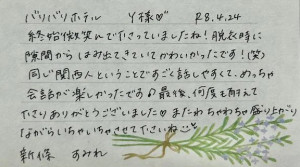 バリバリホテル Y様♡ R8.4.24
終始微笑んで下さっていましたね!脱衣時に
隙間からはみ出てきていてかわいかったです!(笑)
同じ関西人ということですごく話しやすくて、めっちゃ
会話が楽しかったです♪最後、何度も耐えて
下さりありがとうございました♡またわちゃわちゃ盛り上がり
ながらいちゃいちゃさせて下さいね
新條 すみれ